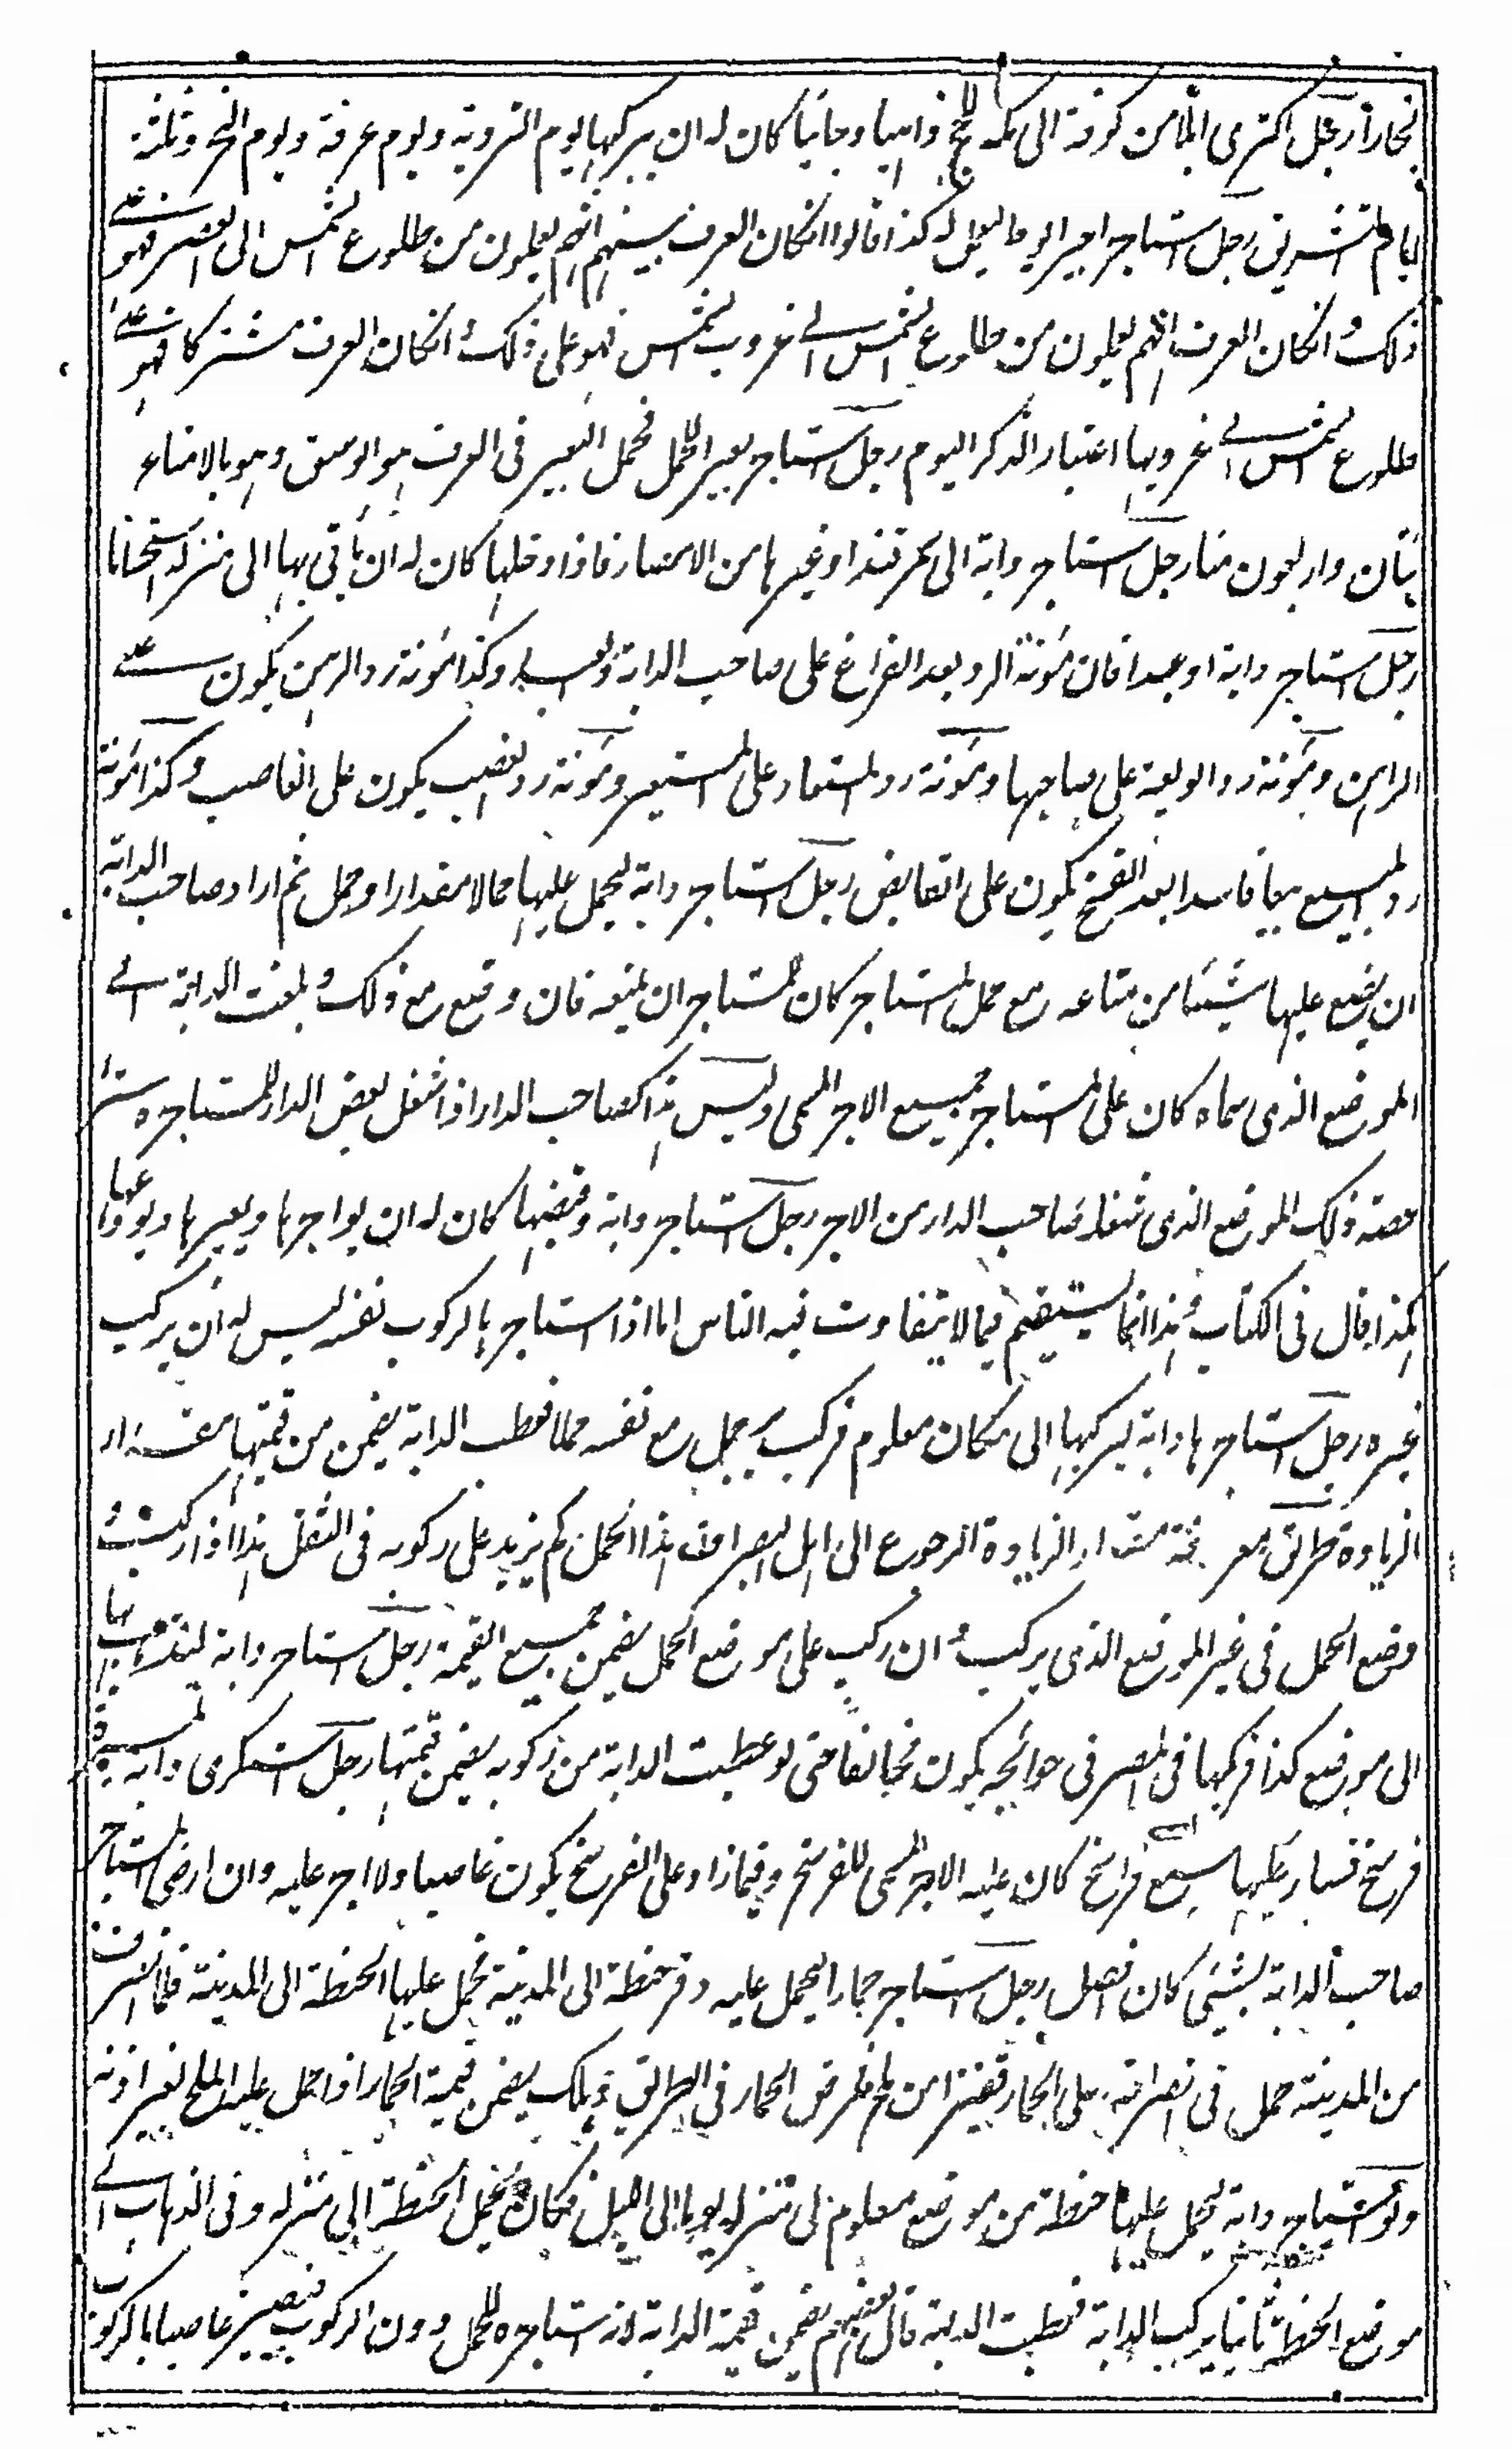 بخارا رجل اكترى ابلا من كوفة الى مكة للحج ذاهبا وجائيا كان له ان يركبها يوم التروية ويوم عرفة ويوم النحر وثلثة
ايام التشريق رجل استاجر اجيرا يوما ليعمل له كذا قالوا انكان العرف بينهم انهم يعملون من طلوع الشمس الى العصر فهو على
ذلك وانكان العرف انهم يعملون من طلوع الشمس الى غروب الشمس فهو على ذلك وانكان العرف مشتركا فهو على
طلوع الشمس الى غروبها اعتبار الذكر اليوم رجل استاجر بعيرا للحمل فحمل البعير فى العرف هو الوسق وهو بالامناء
مئتان واربعون منا رجل استاجر دابة الى سمرقند او غيرها من الامصار فاذا دخلها كان له ان ياتى بها الى منزله استحسانا
رجل استاجر دابة او عبدا فان مؤنة الرد بعد الفراغ على صاحب الدابة والعبد وكذا مؤنة رد الرهن يكون على
الراهن ومؤنة رد الوديعة على صاحبها ومؤنة رد المستعار على المستعير ومؤنة رد الغصب يكون على الغاصب وكذا مؤنة
رد المبيع بيعا فاسدا بعد الفسخ يكون على القابض رجل استاجر دابة ليحمل عليها حملا مقدارا وحمل ثم اراد صاحب الدابة
ان يضع عليها شيئا من متاعه مع حمل المستاجر كان للمستاجر ان يمنعه فان وضع مع ذلك وبلغت الدابة الى
الموضع الذى سماه كان على المستاجر جميع الاجر المسمى وليس هذا كصاحب الدار اذا شغل بعض الدار المستاجرة
حصة ذلك الموضع الذى شغله صاحب الدار من الاجر رجل استاجر دابة وقبضها كان له ان يواجرها ويعيرها ويودعها
هكذا قال فى الكتاب وهذا انما يستقيم فيما لا يتفاوت فيه الناس اما اذا استاجرها لركوب نفسه ليس له ان يركب
غيره رجل استاجرها دابة ليركبها الى مكان معلوم فركب وحمل مع نفسه حملا فعطب الدابة يضمن من قيمتها مقدار
الزيادة طريق معرفة مقدار الزيادة الرجوع الى اهل البصر ان هذا الحمل كم يزيد على ركوبه فى الثقل هذا اذا ركب و
وضع الحمل فى غير الموضع الذى يركب وان ركب على موضع الحمل يضمن جميع القيمة رجل استاجر دابة ليذهب بها
الى موضع كذا فركبها فى المصر فى حوائجه يكون مخالفا حتى لو عطبت الدابة من ركوبه يضمن قيمتها رجل استكرى دابة
فرسخ فسار عليها سبع فراسخ كان عليه الاجر المسمى للفرسخ وفيما زاد على الفرسخ يكون غاصبا ولا اجر عليه وان ارضى المستاجر
صاحب الدابة بشيئ كان افضل رجل استاجر حمارا ليحمل عليه وقر حنطة الى المدينة فحمل عليها الحنطة الى المدينة فلما انصرف
من المدينة حمل فى انصرافه على الحمار قفيزا من ملح فمرض الحمار فى الطريق وهلك يضمن قيمة الحمار اذا حمل عليه الملح بغير اذنه
ولو استاجر دابة ليحمل عليها حنطة من موضع معلوم الى منزله يوما الى الليل فكان يحمل الحنطة الى منزله وفى الذهاب الى
موضع الحنطة ثانيا يركب الدابة فعطبت الدابة قال بعضهم يضمن قيمة الدابة لانه استاجره للحمل دون الركوب فيصير غاصبا بالركوب